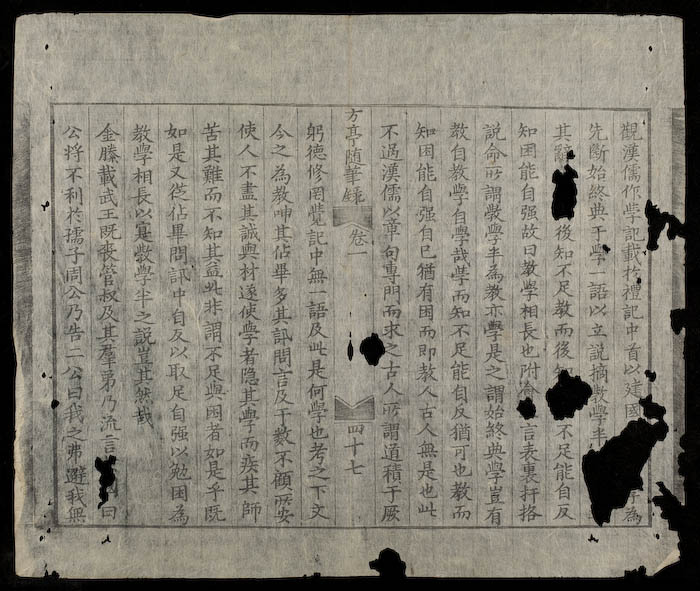 觀漢儒作學記載扵禮記中首以建國為
先斷始終典于學一語以立說摘教學半
其辭後知不足教而後知不足能自反
知困能自强故曰教學相長也附言表裏扞挌
說命所謂斆學半為教亦學是之謂始終典學豈有
教自教學自學哉學而知不足能自反猶可也教而
知困能自强自已猶有困而即教人古人無是也此
不過漢儒以章句專門而求之古人所謂道積于厥
方亭随筆録 卷一 四十七
躬德修罔覺記中無一語及此是何學也考之下文
今之為教呻其佔畢多其訊問言及于數不顧所安
使人不盡其誠與材遂使學者隐其學而疾其師
苦其難而不知其益此非謂不足與困者如是乎既
如是又從佔畢問訊中自反以取足自强以勉困為
教學相長以寔斆學半之說豈其然哉
金縢載武王既喪管叔及其羣弟乃流言曰
公將不利扵孺子周公乃告二公曰我之弗避我無